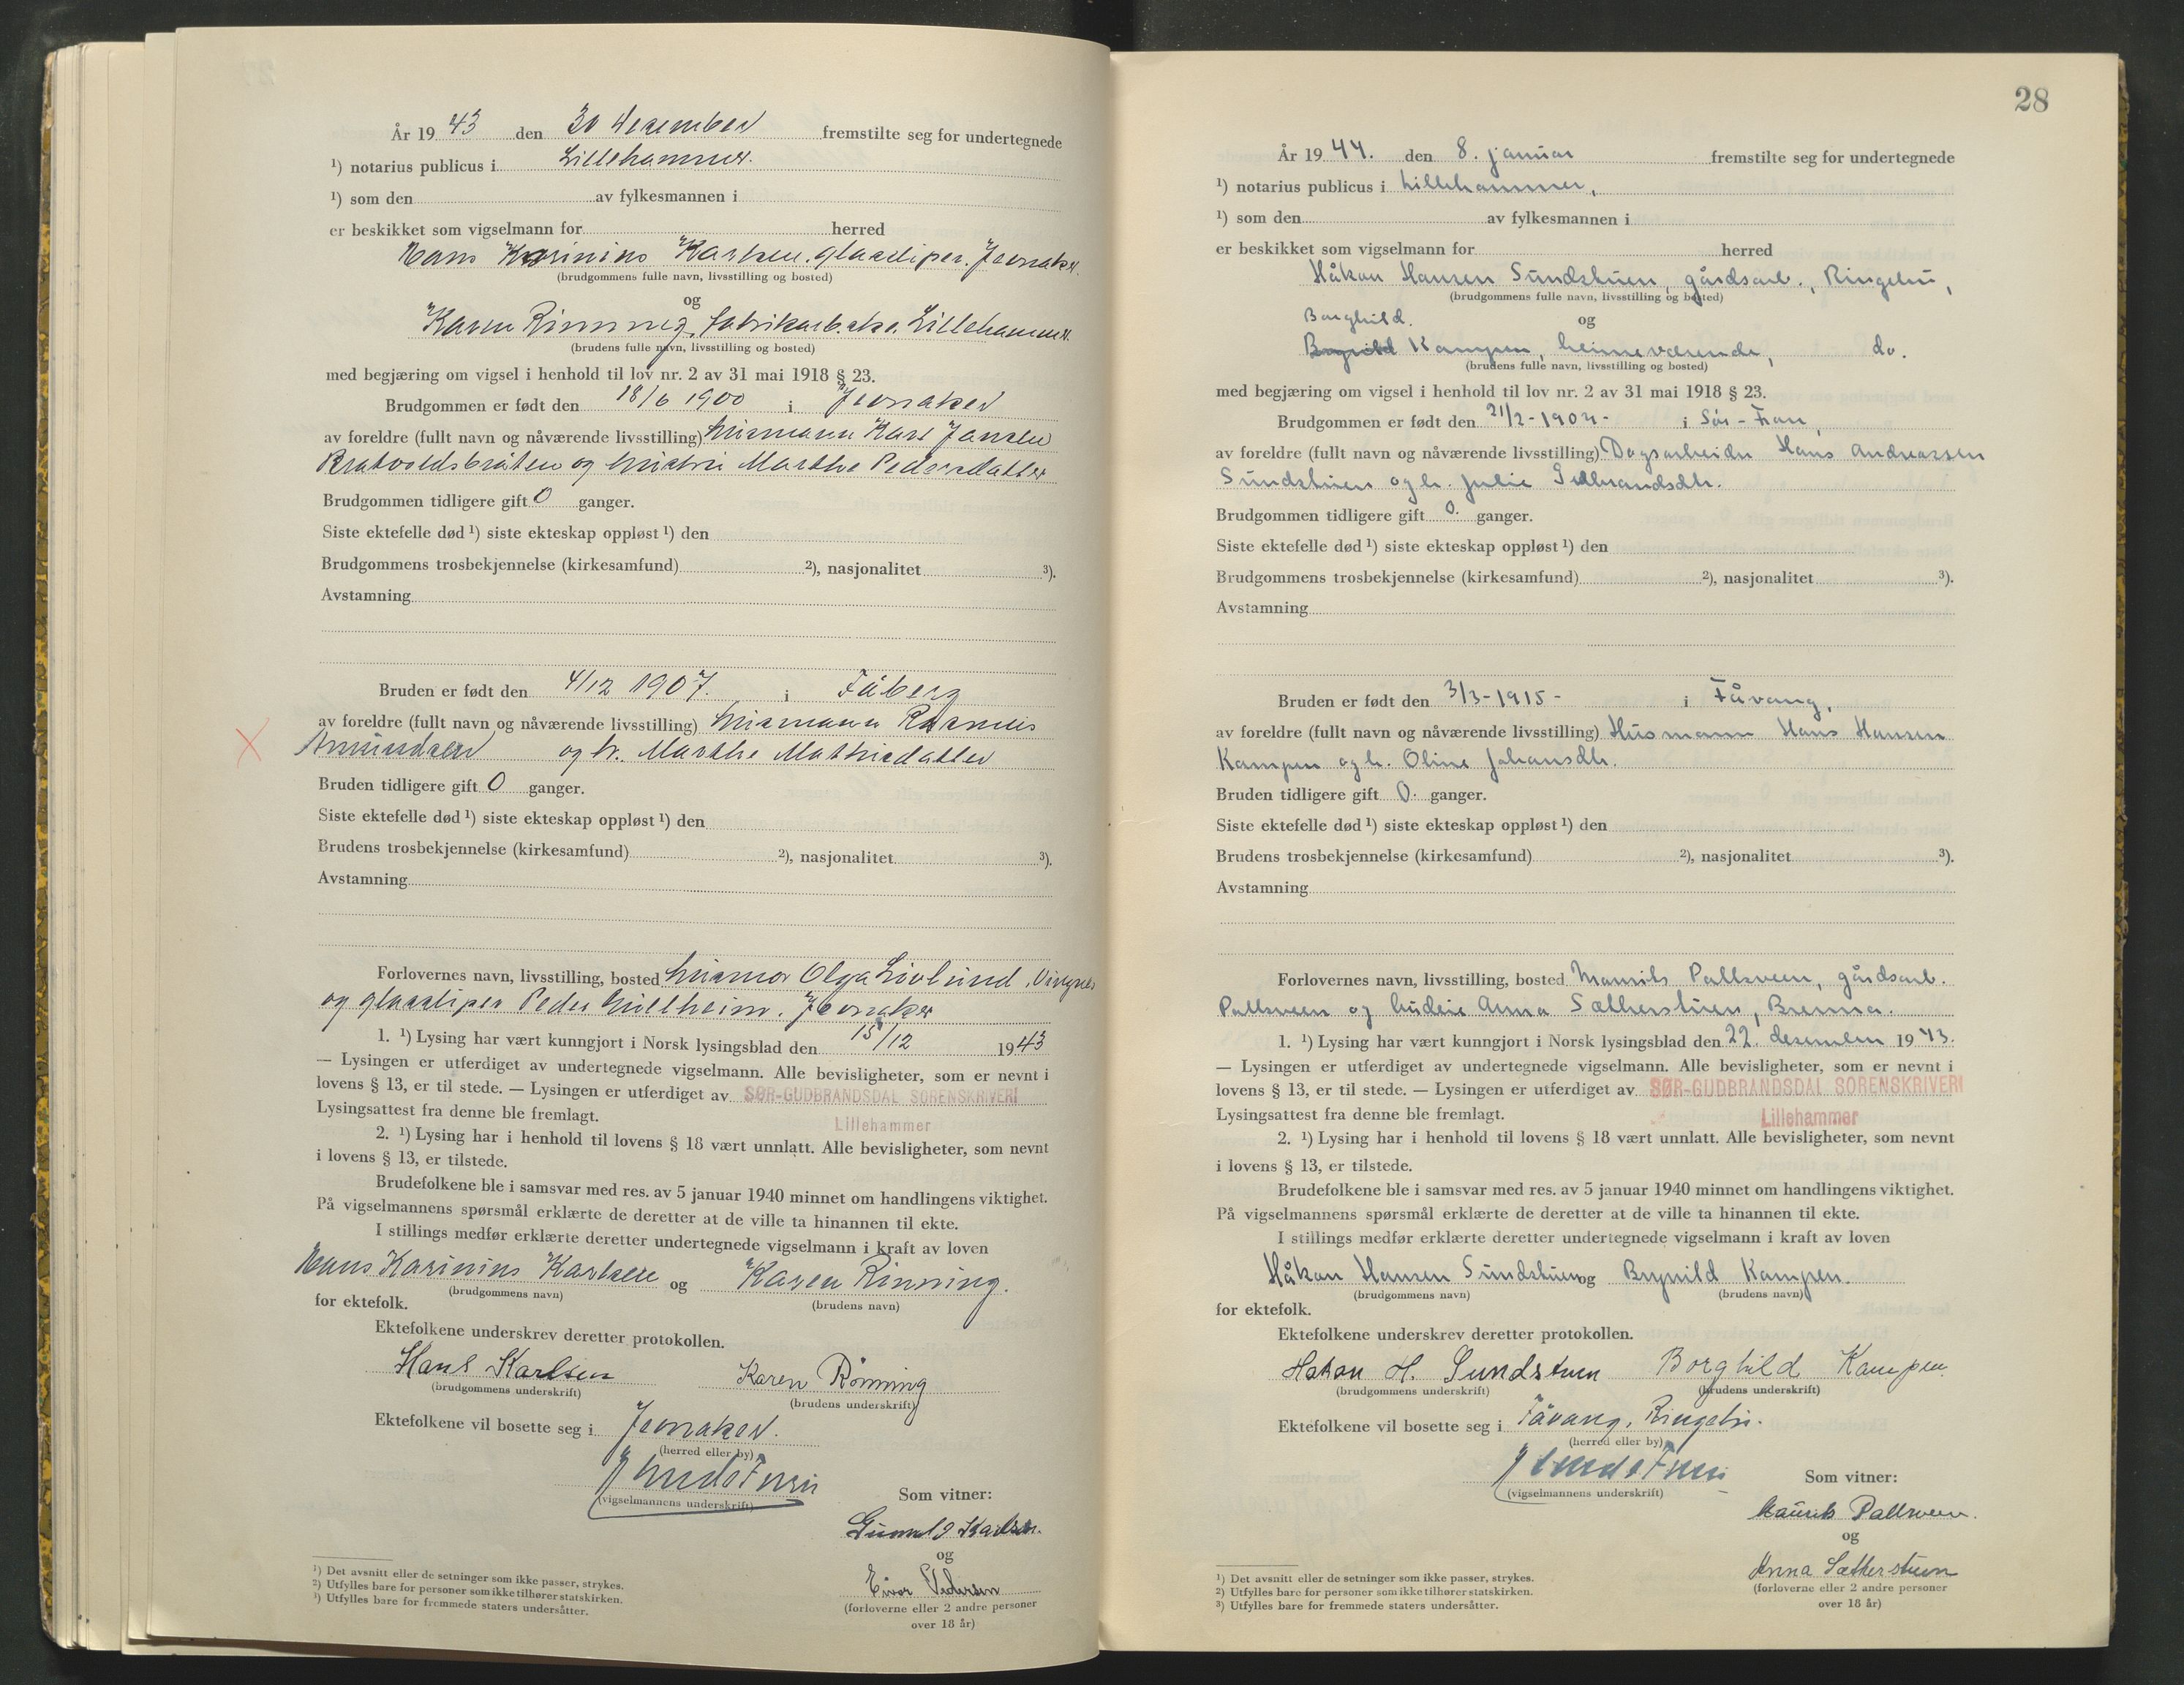 År 1943 den 30 desember fremstilte seg for undertegnede
¹) notarius publicus i Lillehammer.
¹) som den av fylkesmannen i
er beskikket som vigselmann for herred
Hans Karinius Karlsen. glassliper. Jevnaker.
(brudgommens fulle navn, livsstilling og bosted)
og
Karen Rinning, fabrikarb.ske. Lillehammer.
(brudens fulle navn, livsstilling og bosted)
med begjæring om vigsel i henhold til lov nr. 2 av 31 mai 1918 § 23.
Brudgommen er født den 18/6 1900 i Jevnaker
av foreldre (fullt navn og nåværende livsstilling) husmann Karl Jansen
og hustru Marthe Pedersdatter
Brudgommen tidligere gift 0 ganger.
Siste ektefelle død ¹) siste ekteskap oppløst ¹) den
Brudgommens trosbekjennelse (kirkesamfund) ²), nasjonalitet ³).
Avstamning
Bruden er født den 4/12 1907. i Fåberg
av foreldre (fullt navn og nåværende livsstilling) husmann Rasmus
Amundsen og h. Marthe Mathisdatter
Bruden tidligere gift 0 ganger.
Siste ektefelle død ¹) siste ekteskap oppløst ¹) den
Brudens trosbekjennelse (kirkesamfund) ²), nasjonalitet ³).
Avstamning
Forlovernes navn, livsstilling, bosted husmor Olga
og glassliper Peder Jevnaker
1. ¹) Lysing har vært kunngjort i Norsk lysingsblad den 15/12 1943
— Lysingen er utferdiget av undertegnede vigselmann. Alle bevisligheter, som er nevnt i
lovens § 13, er til stede. — Lysingen er utferdiget av SØR-GUDBRANDSDAL SORENSKRIVERI
Lysingsattest fra denne ble fremlagt. Lillehammer
2. ¹) Lysing har i henhold til lovens § 18 vært unnlatt. Alle bevisligheter, som nevnt
i lovens § 13, er tilstede.
Brudefolkene ble i samsvar med res. av 5 januar 1940 minnet om handlingens viktighet.
På vigselmannens spørsmål erklærte de deretter at de ville ta hinannen til ekte.
I stillings medfør erklærte deretter undertegnede vigselmann i kraft av loven
Hans Karinius Karlsen og Karen Rinning.
(brudgommens navn) (brudens navn)
for ektefolk.
Ektefolkene underskrev deretter protokollen.
Hans Karlsen Karen Rönning
(brudgommens underskrift) (brudens underskrift)
Ektefolkene vil bosette seg i Jevnaker.
(herred eller by)
(vigselmannens underskrift)
Som vitner:
Karlsen.
og
Eivor Pedersen
(forloverne eller 2 andre personer
over 18 år)
¹) Det avsnitt eller de setninger som ikke passer, strykes.
²) Utfylles bare for personer som ikke tilhører statskirken.
³) Utfylles bare for fremmede staters undersåtter.
28
År 1944. den 8. januar fremstilte seg for undertegnede
¹) notarius publicus i Lillehammer,
¹) som den av fylkesmannen i
er beskikket som vigselmann for herred
Håkon Hansen Sundstuen, gårdsarb., Ringebu,
(brudgommens fulle navn, livsstilling og bosted)
Borghild. og
Kampen, heimeværende, do.
(brudens fulle navn, livsstilling og bosted)
med begjæring om vigsel i henhold til lov nr. 2 av 31 mai 1918 § 23.
Brudgommen er født den 21/2-1904- i Sør-Fron,
av foreldre (fullt navn og nåværende livsstilling) Dagsarbeider Hans Andreassen
Sundstuen og h. Julie
Brudgommen tidligere gift 0. ganger.
Siste ektefelle død ¹) siste ekteskap oppløst ¹) den
Brudgommens trosbekjennelse (kirkesamfund) ²), nasjonalitet ³).
Avstamning
Bruden er født den 3/3-1915- i Fåvang,
av foreldre (fullt navn og nåværende livsstilling) Husmann Hans Hansen
Kampen og h. Oline Johansdtr.
Bruden tidligere gift 0. ganger.
Siste ektefelle død ¹) siste ekteskap oppløst ¹) den
Brudens trosbekjennelse (kirkesamfund) ²), nasjonalitet ³).
Avstamning
Forlovernes navn, livsstilling, bosted Maurits Pallsveen, gårdsarb.
Pallsveen og budeie Anna Sætherstuen, Brenna.
1. ¹) Lysing har vært kunngjort i Norsk lysingsblad den 22. desember 1943.
— Lysingen er utferdiget av undertegnede vigselmann. Alle bevisligheter, som er nevnt i
lovens § 13, er til stede. — Lysingen er utferdiget av SØR-GUDBRANDSDAL SORENSKRIVERI
Lysingsattest fra denne ble fremlagt. Lillehammer
2. ¹) Lysing har i henhold til lovens § 18 vært unnlatt. Alle bevisligheter, som nevnt
i lovens § 13, er tilstede.
Brudefolkene ble i samsvar med res. av 5 januar 1940 minnet om handlingens viktighet.
På vigselmannens spørsmål erklærte de deretter at de ville ta hinannen til ekte.
I stillings medfør erklærte deretter undertegnede vigselmann i kraft av loven
Håkon Hansen Sundstuen og Brynild Kampen.
(brudgommens navn) (brudens navn)
for ektefolk.
Ektefolkene underskrev deretter protokollen.
Håkon H. Sundstuen Borghild Kampen
(brudgommens underskrift) (brudens underskrift)
Ektefolkene vil bosette seg i Fåvang, Ringebu.
(herred eller by)
(vigselmannens underskrift)
Som vitner:
Maurits Pallsveen.
og
Anna Sætherstuen
(forloverne eller 2 andre personer
over 18 år)
¹) Det avsnitt eller de setninger som ikke passer, strykes.
²) Utfylles bare for personer som ikke tilhører statskirken.
³) Utfylles bare for fremmede staters undersåtter.